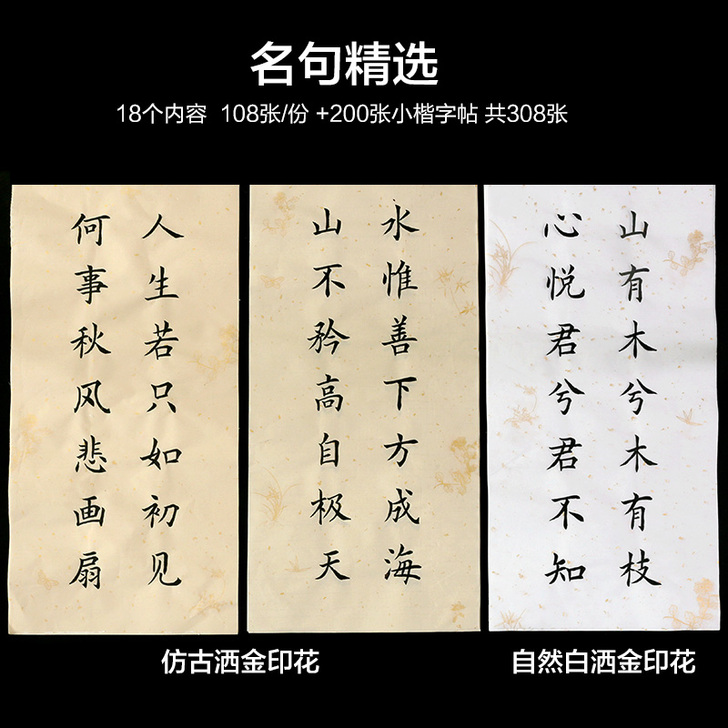 名句精选
18个内容 108张/份 +200张小楷字帖 共308张
人生若只如初见
何事秋风悲画扇
水惟善下方成海
山不矜高自极天
山有木兮木有枝
心悦君兮君不知
仿古洒金印花
自然白洒金印花